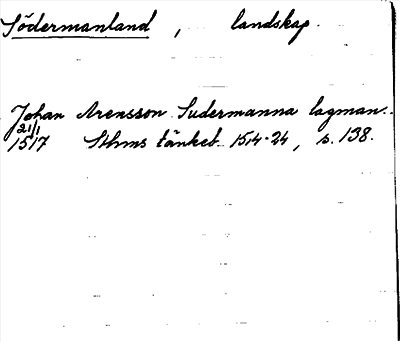 Södermanland, landskap.
Johan Arensson Sudermanna lagman.
21/1
1517 Sthms tänkeb. 1514-24, s. 138.